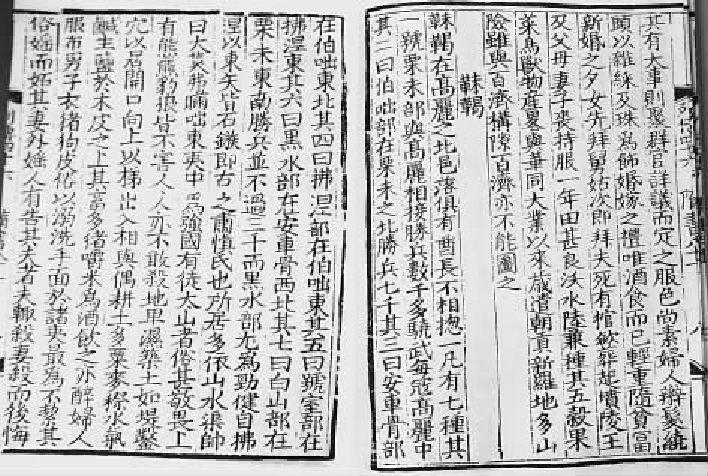 其有大事則聚群官詳議而定之服色尚素婦人辮髮繞
頭以雜綵及珠爲飾婚嫁之禮唯酒食而已輕重隨貧富
新婚之夕女先拜舅姑次即拜夫死有棺歛葬起墳陵王
及父母妻子喪持服一年田甚良沃水陸兼種其五穀果
菜鳥獸物産畧與華同大業以來歲遣朝貢新羅地多山
險雖與百濟構隙百濟亦不能圖之
靺鞨
靺鞨在髙麗之北邑落俱有酋長不相揔一凡有七種其
一號粟末部與髙麗相接勝兵數千多驍武每寇髙麗中
其二曰伯咄部在粟末之北勝兵七千其三曰安車骨部
在伯咄東北其四曰拂涅部在伯咄東其五曰號室部在
拂涅東其六曰黑水部在安車骨西北其七曰白山部在
粟末東南勝兵並不過三千而黑水部尤爲勁健自拂
涅以東矢皆石鏃即古之肅慎氏也所居多依山水渠帥
曰大莫弗瞞咄東夷中爲強國有徒太山者俗甚敬畏上
有熊羆豹狼皆不害人人亦不敢殺地卑濕築土如堤鑿
穴以居開口向上以梯出入相與偶耕土多粟麥穄水氣
鹹生鹽於木皮之上其畜多猪嚼米爲酒飲之亦醉婦人
服布男子衣猪狗皮俗以溺洗手面於諸夷最爲不潔其
俗婬而妬其妻外婬人有告其夫者夫輙殺妻殺而後悔